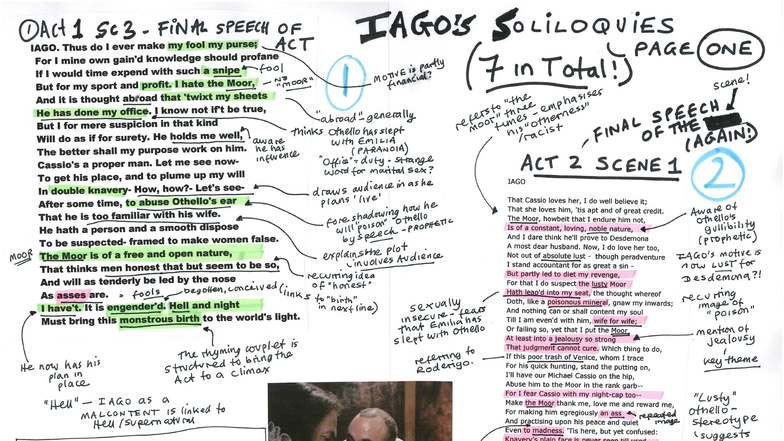 IAGO'S SOLILOQUIES
PAGE ONE
(7 in Total!)
① Act 1 Sc3 - FINAL SPEECH OF
ACT
1
IAGO. Thus do I ever make my fool my purse;
For I mine own gain'd knowledge should profane
If I would time expend with such a snipe
But for my sport and profit. I hate the Moor,
And it is thought abroad that 'twixt my sheets
He has done my office. I know not if't be true,
But I for mere suspicion in that kind
Will do as if for surety. He holds me well,
The better shall my purpose work on him.
Cassio's a proper man. Let me see now-
To get his place, and to plume up my will
In double knavery- How, how?- Let's see-
After some time, to abuse Othello's ear
That he is too familiar with his wife.
He hath a person and a smooth dispose
To be suspected- framed to make women false.
The Moor is of a free and open nature,
That thinks men honest that but seem to be so,
And will as tenderly be led by the nose
As asses are.
I have't. It is engender'd. Hell and night
Must bring this monstrous birth to the world's light.
fool
No "MOOR"
MOTIVE is partly
financial?
"abroad" - generally
thinks Othello has slept
with EMILIA
(PARANOIA)
"Office" = duty - strange
word for marital sex?
aware
he has
influence
draws audience in as he
plans 'live'
foreshadowing how he
will "poison" Othello
by speech - PROPHETIC
explains the plot
involves Audience
MOOR
recurring
idea of
"honest"
fools
begotten, conceived (links
to "birth"
in next line)
He now has his
plan in
place
The rhyming couplet is
structured to bring the
Act to a climax
"Hell" - IAGO as a
MALCONTENT is linked to
Hell/Supernatural
refers to "the
moor" three
times - emphasises
his "otherness"
/racist
scene!
FINAL SPEECH
OF THE
(AGAIN!)
ACT 2 SCENE 1
2
IAGO
That Cassio loves her, I do well believe it;
That she loves him, 'tis apt and of great credit.
The Moor, howbeit that I endure him not,
Is of a constant, loving, noble nature,
And I dare think he'll prove to Desdemona
A most dear husband. Now, I do love her too,
Not out of absolute lust - though peradventure
I stand accountant for as great a sin -
But partly led to diet my revenge,
For that I do suspect the lusty Moor
Hath leap'd into my seat, the thought whereof
Doth, like a poisonous mineral, gnaw my inwards;
And nothing can or shall content my soul
Till I am even'd with him, wife for wife;
Or failing so, yet that I put the Moor
At least into a jealousy so strong
That judgment cannot cure. Which thing to do,
If this poor trash of Venice, whom I trace
For his quick hunting, stand the putting on,
I'll have our Michael Cassio on the hip,
Abuse him to the Moor in the rank garb--
For I fear Cassio with my night-cap too--
Make the Moor thank me, love me and reward me,
For making him egregiously an ass
And practising upon his peace and quiet
Even to madness. 'Tis here, but yet confused:
Knavery's plain face is never seen till used.
Aware of
Othello's
gullibility
(prophetic)
IAGO's motive is
now LUST for
DESDEMONA?!
recurring
image of
"poison"
mention of
jealousy
key theme
sexually
insecure - fears
that Emilia has
slept with Othello
referring to
Roderigo.
repeated
image
"Lusty"
Othello -
stereotype
suggests